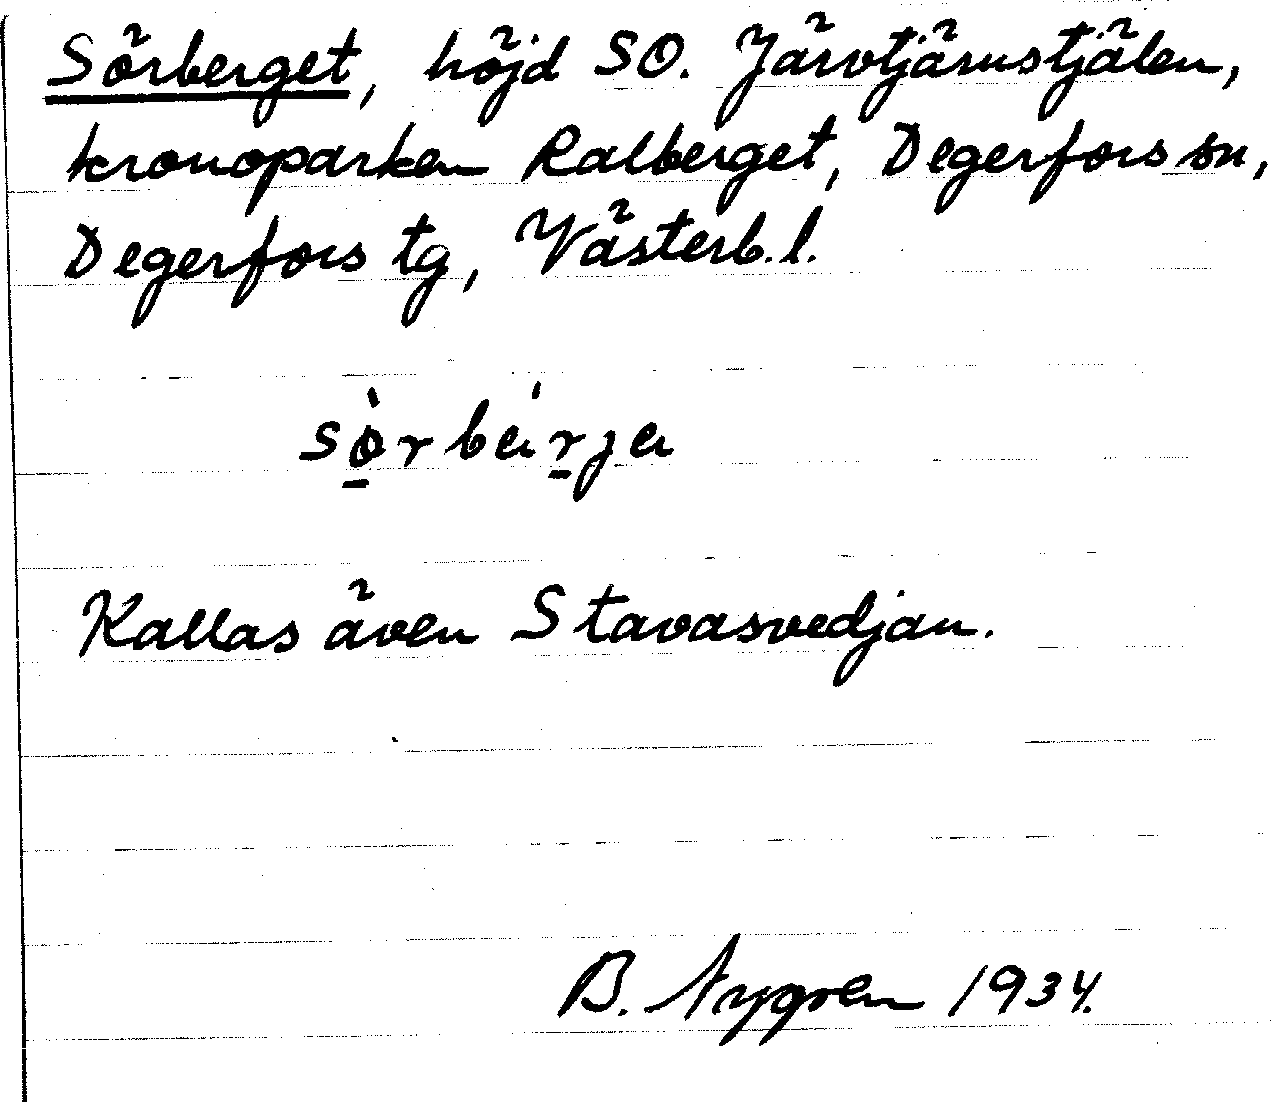 Sörberget, höjd SO. Järvtjärnstjälen,
kronoparken Ralberget, Degerfors sn,
Degerfors tg, Västerb.l.
sø̀rbárja
Kallas även Stavasvedjan.
B. Nygren 1934.